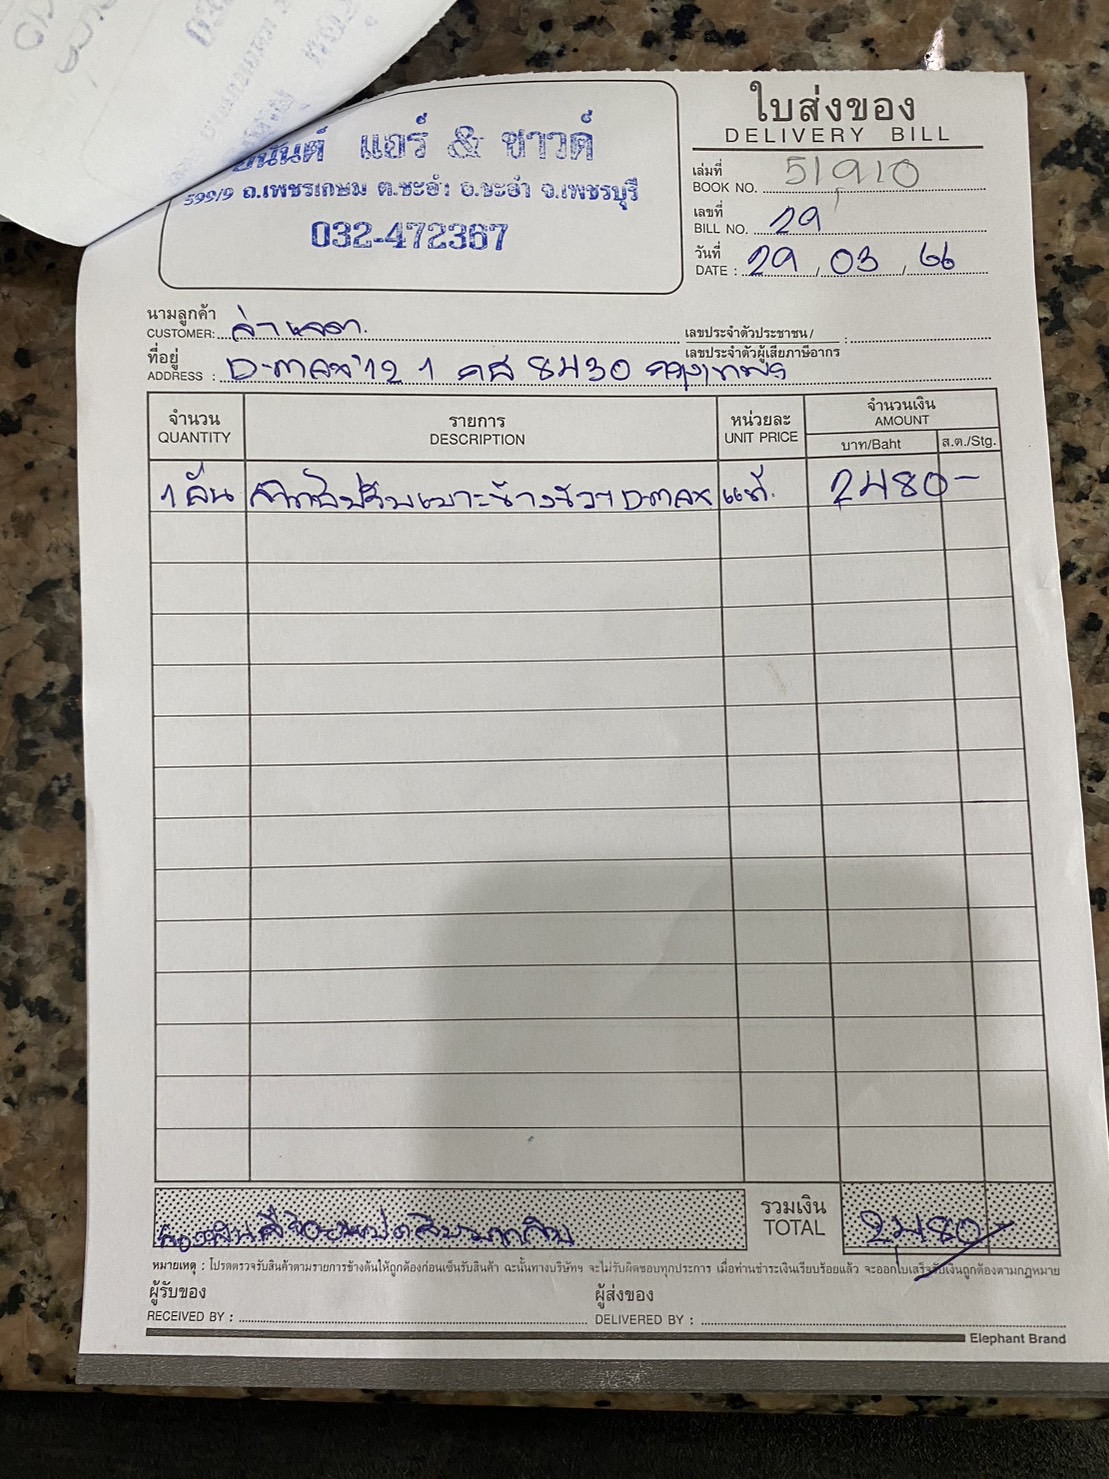 ใบส่งของ
DELIVERY BILL
แอร์ & ซาวด์
599/9 ถ.เพชรเกษม ต.ชะอำ อ.ชะอำ จ.เพชรบุรี
032-472367
เล่มที่
BOOK NO. 51910
เลขที่
BILL NO. 29
วันที่
DATE : 29 / 03 / 66
นามลูกค้า
CUSTOMER:
เลขประจำตัวประชาชน/
เลขประจำตัวผู้เสียภาษีอากร :
ที่อยู่
ADDRESS : D-max'12 1 8430 กรุงเทพฯ
จำนวน รายการ หน่วยละ จำนวนเงิน
QUANTITY DESCRIPTION UNIT PRICE AMOUNT
บาท/Baht ส.ต./Stg.
1 อัน D-max แท้. 2480-
รวมเงิน
TOTAL 2480-
หมายเหตุ : โปรดตรวจรับสินค้าตามรายการข้างต้นให้ถูกต้องก่อนเซ็นรับสินค้า ฉะนั้นทางบริษัทฯ จะไม่รับผิดชอบทุกประการ เมื่อท่านชำระเงินเรียบร้อยแล้ว จะออกใบเสร็จรับเงินถูกต้องตามกฎหมาย
ผู้รับของ ผู้ส่งของ
RECEIVED BY : DELIVERED BY :
Elephant Brand